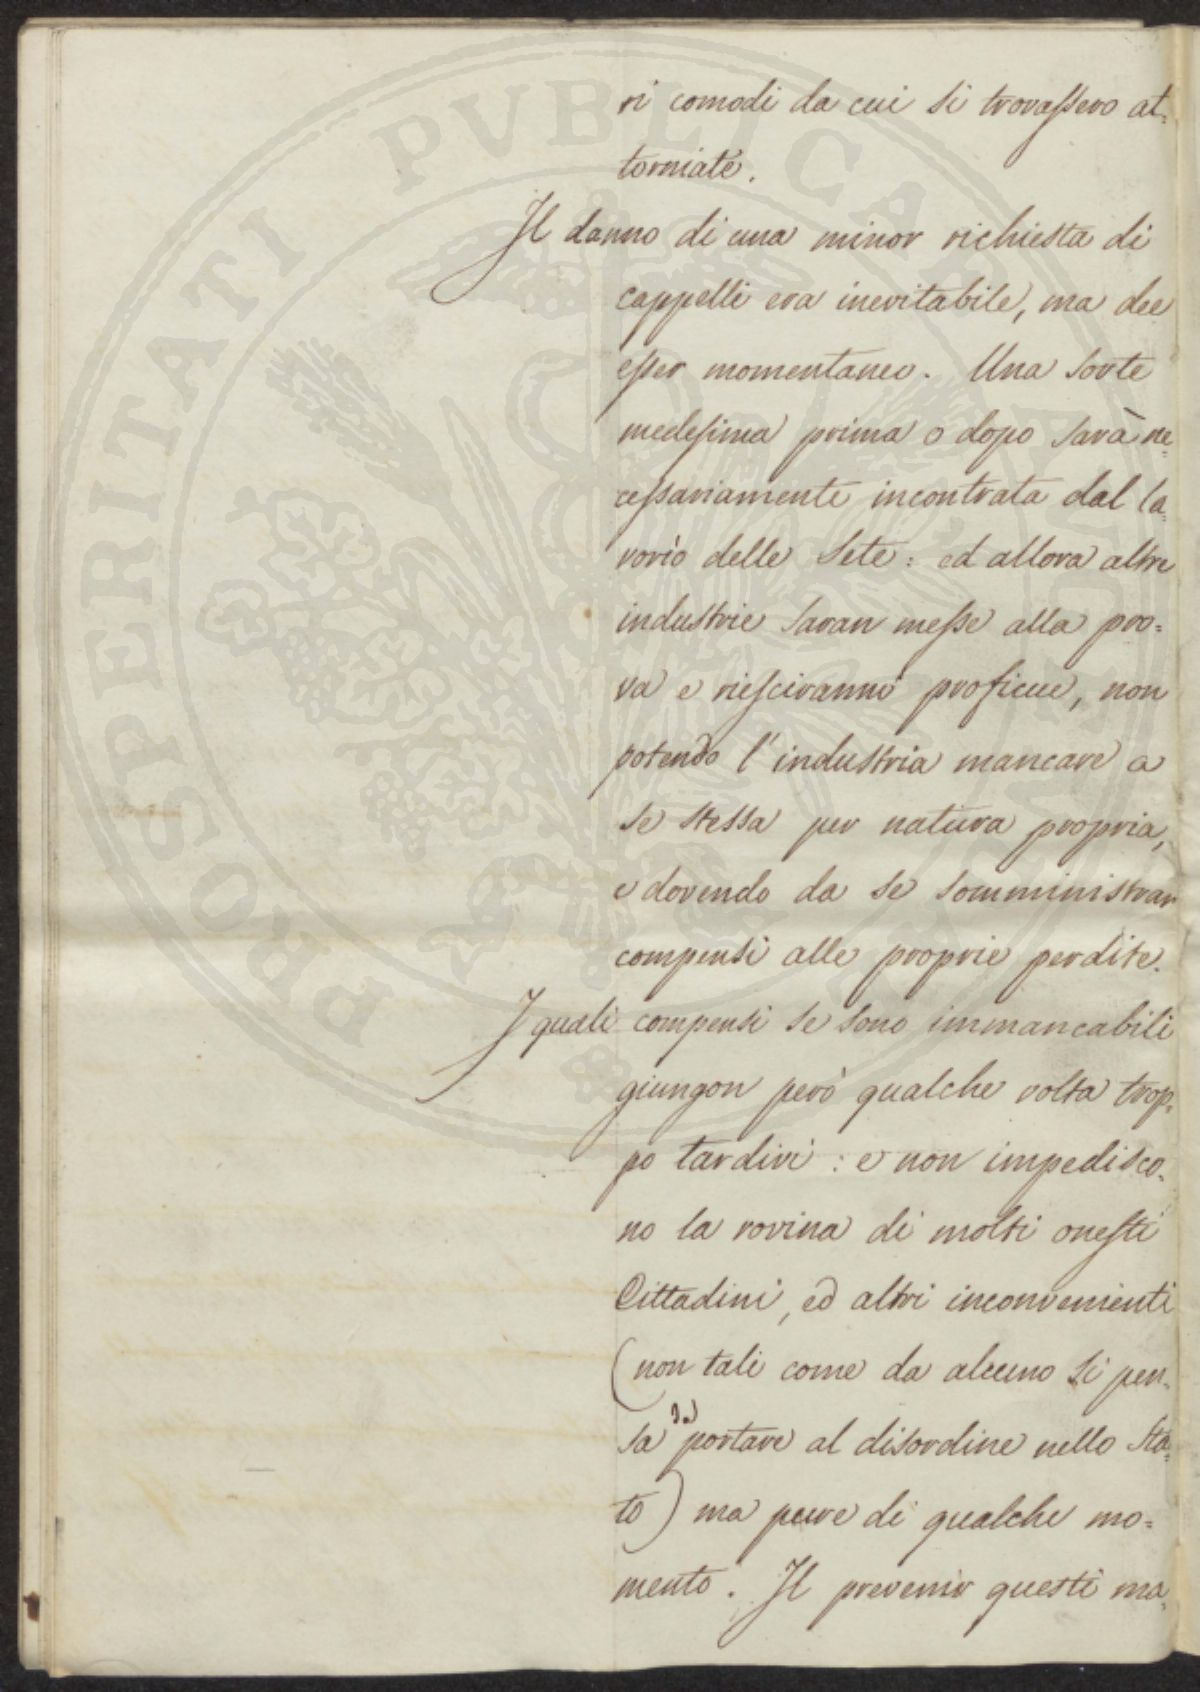 ri comodi da cui si trovassero at-
torniate.
Il danno di una minor richiesta di
cappelli era inevitabile, ma dee
esser momentaneo. Una sorte
medesima prima o dopo sarà ne-
cessariamente incontrata dal la-
vorìo delle Sete: ed allora altre
industrie saran messe alla pro-
va e riesciranno proficue, non
potendo l'industria mancare a
se stessa per natura propria,
e dovendo da se somministrar
compensi alle proprie perdite.
I quali compensi se sono immancabili
giungon però qualche volta trop-
po tardivi: e non impedisco-
no la rovina di molti onesti
Cittadini, ed altri inconvenienti
(non tali come da alcuno si pen-
sa da portare al disordine nello Sta-
to) ma pure di qualche mo-
mento. Il prevenir questi ma-
PROSPERITATI PVBLICAE